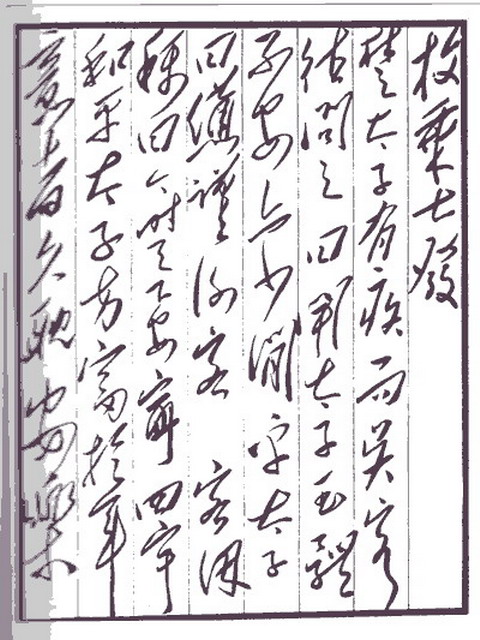 枚乘七發
楚太子有疾而吳客
往問之曰聞太子玉體
不安亦少閒乎太子
曰憊謹謝客客因
稱曰今時天下安寧四宇
和平太子方富於年
意者久耽安樂